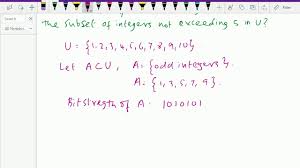 The subset of integers not exceeding 5 in U?
U = {1,2,3,4,5,6,7,8,9,10}
Let A⊂U, A={odd integers}
A = {1,3,5,7,9}.
Bitstrength of A. 1010101